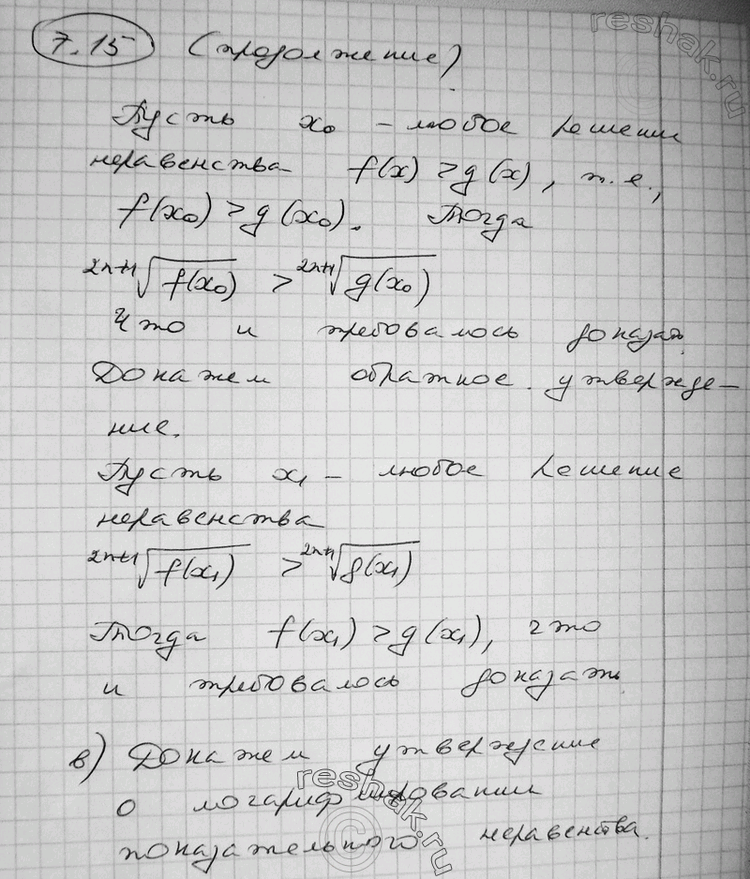 reshak.ru
7.15 (продолжение)
Пусть x₀ - любое решение
неравенства f(x) > g(x), т.е.,
f(x₀) > g(x₀). Тогда
²ⁿ⁺¹√f(x₀) > ²ⁿ⁺¹√g(x₀)
Что и требовалось доказать.
Докажем обратное утвержде-
ние.
Пусть x₁ - любое решение
неравенства
²ⁿ⁺¹√f(x₁) > ²ⁿ⁺¹√g(x₁)
Тогда f(x₁) > g(x₁), что
и требовалось доказать.
в) Докажем утверждение
о логарифмировании
показательного неравенства.
reshak.ru